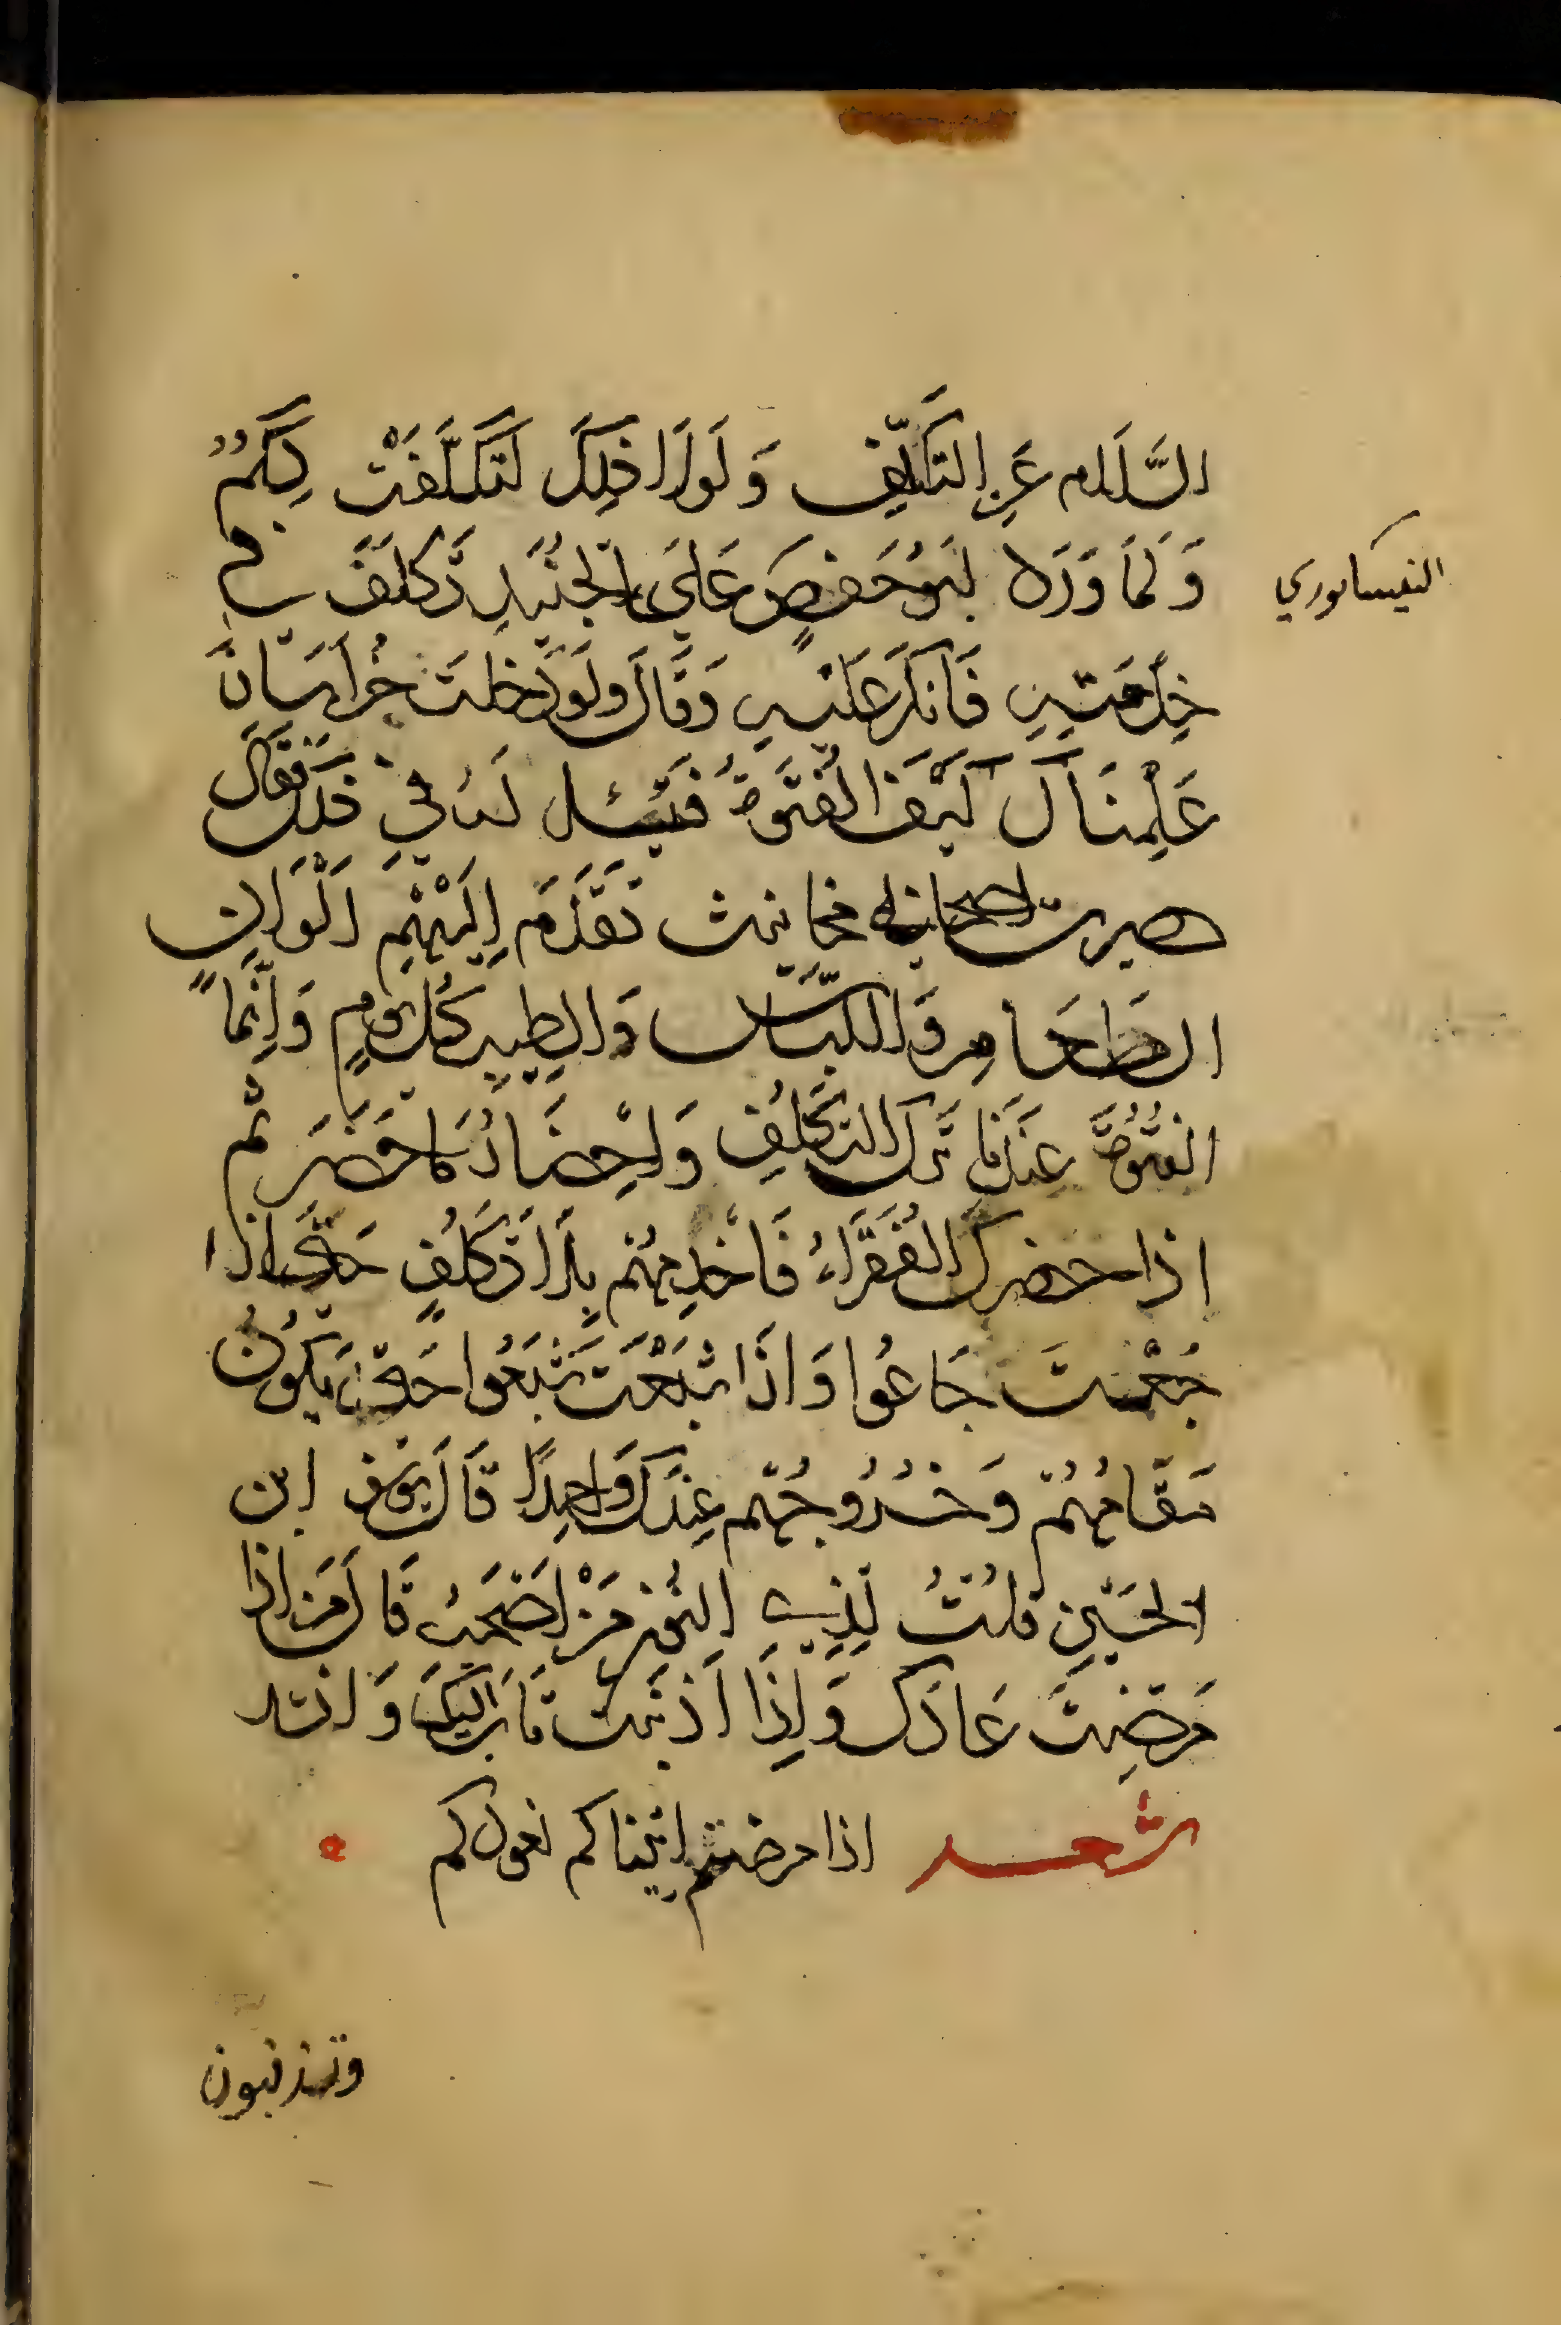 السَّلَام عَنِ التَكَلّفِ وَلَولَا ذٰلِكَ لَتَكَلَّفْتُ لَكُمْ
وَلَمَّا وَرَدَ ابُو حَفصٍ عَلَى الجُنَيدِ تَكلفَ في
النيسابوري
خِدمَتِهِ فَانكَرَ عَلَيهِ وَقَالَ وَلَو دَخلتَ خُرَاسَانَ
عَلِمْنَاكَ كَيْفَ الفُتَوةُ فَقِيل لهُ في ذلك فقَالَ
صيرت اصحابنا مخانيث تقَدَم اِلَيْهِم اَلْوَان
الطعَامِ وَاللبَاس وَالطِيب كُل يَومٍ وَاِنّمَا
الفُتُوةُ عِندَنا تَرك التَكَلُّفِ وَاِحضَارُ مَا حَضَرَ ثم
اذا حضرك الفُقَرَاءُ فَاخْدِمهُم بِلَا تَكَلُفٍ حَتى اذا
جُعْتَ جَاعُوا وَاذَا شَبَعْتَ شَبَعُوا حَتى يَكُونُ
مَقَامُهُمْ وَخُرُوجُهُم عِندَكَ وَاحِدًا قَالَ يُوسف ابن
الحُسَينِ قلتُ لِذِي النُونِ مَنْ اصْحَبُ قَالَ مَن اذا
مَرِضتَ عَادَكَ وَاِذَا اَذنَبتَ تَابَ اليكَ وَانشد
شعر اذا مرضتم اتيناكم نعودكم
وتذنبون